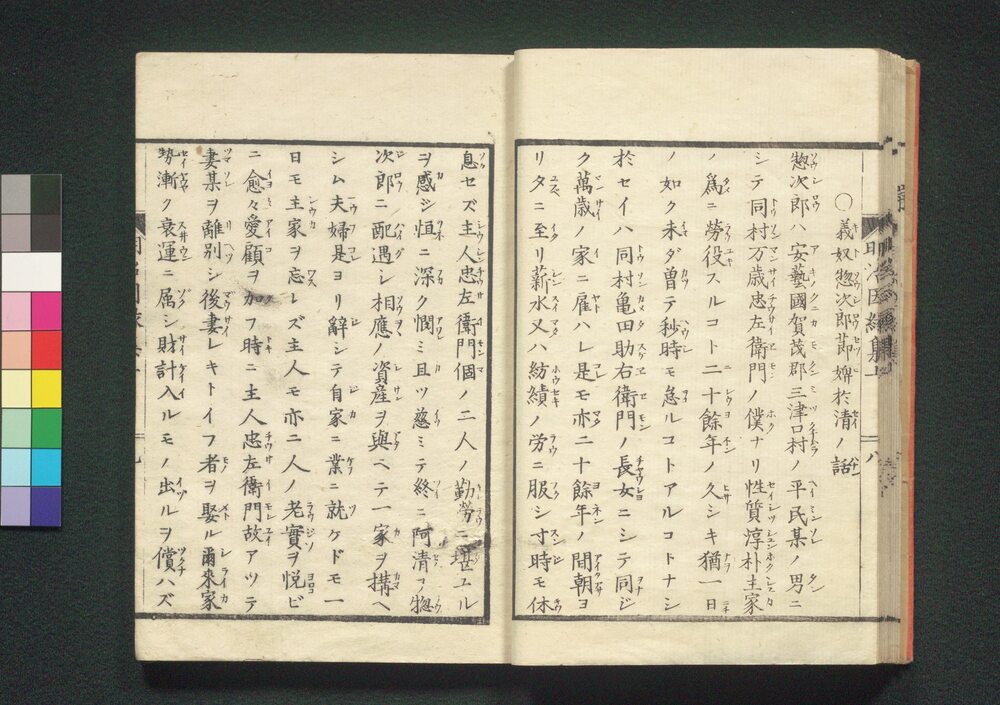 ○義奴惣次郎節婢於清ノ話
惣次郎ハ安藝國賀茂郡三津口村ノ平民某ノ男ニ
シテ同村万歳忠左衛門ノ僕ナリ性質淳朴主家
ノ爲ニ勞役スルコト二十餘年ノ久シキ猶一日
ノ如ク未ダ曽テ秒時モ怠ルコトアルコトナシ
於セイハ同村亀田助右衛門ノ長女ニシテ同ジ
ク萬歳ノ家ニ雇ハレ是モ亦二十餘年ノ間朝ヨ
リタニ至リ薪水又ハ紡績ノ労ニ服シ寸時モ休
息セズ主人忠左衛門個ノ二人ノ勤勞ニ堪ユル
ヲ感ジ恒ニ深ク憫ミ且ツ慈ミテ終ニ阿清ヲ惣
次郎ニ配遇シ相應ノ資産ヲ與ヘテ一家ヲ搆ヘ
シム夫婦是ヨリ辭シテ自家ニ業ニ就ケドモ一
日モ主家ヲ忘レズ主人モ亦二人ノ老實ヲ悦ビ
ニ愈々愛顧ヲ加フ時ニ主人忠左衛門故アツテ
妻某ヲ離別シ後妻レキトイフ者ヲ娶ル爾來家
勢漸ク衰運ニ属シ財計入ルモノ出ルヲ償ハズ